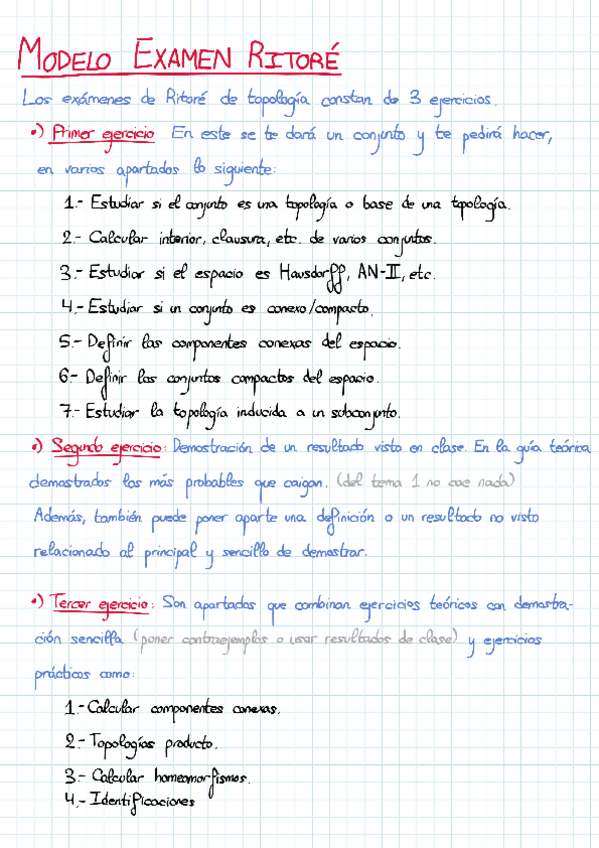 MODELO EXAMEN RITORÉ
Los exámenes de Ritoré de topología constan de 3 ejercicios.
•) Primer ejercicio En este se te dará un conjunto y te pedirá hacer,
en varios apartados lo siguiente:
1.- Estudiar si el conjunto es una topología o base de una topología.
2.- Calcular interior, clausura, etc. de varios conjuntos.
3.- Estudiar si el espacio es Hausdorff, AN-II, etc.
4.- Estudiar si un conjunto es conexo/compacto.
5.- Definir las componentes conexas del espacio.
6.- Definir los conjuntos compactos del espacio.
7.- Estudiar la topología inducida a un subconjunto.
•) Segundo ejercicio: Demostración de un resultado visto en clase. En la guía teórica
demostrados los más probables que caigan. (del tema 1 no cae nada)
Además, también puede poner aparte una definición o un resultado no visto
relacionado al principal y sencillo de demostrar.
•) Tercer ejercicio: Son apartados que combinan ejercicios teóricos con demostra-
ción sencilla (poner contraejemplos o usar resultados de clase) y ejercicios
prácticos como:
1.- Calcular componentes conexas.
2.- Topologías producto.
3.- Calcular homeomorfismos.
4.- Identificaciones